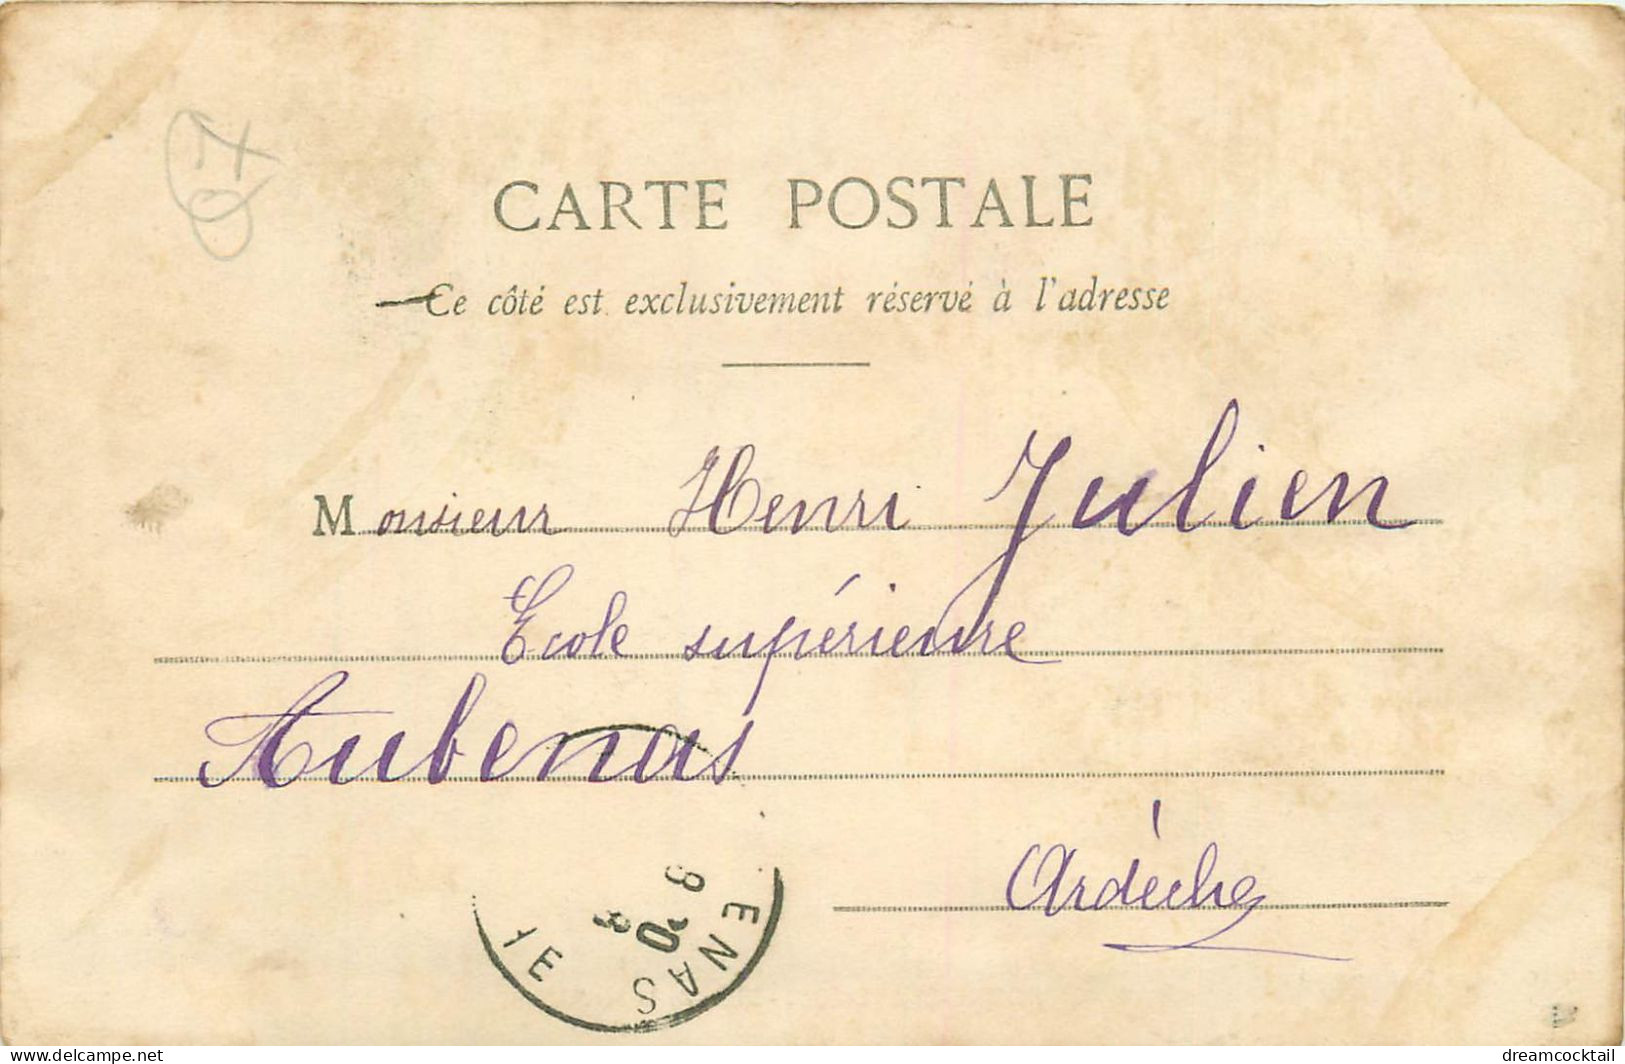 CARTE POSTALE
Ce côté est exclusivement réservé à l'adresse
Monsieur Henri Julien
Ecole supérieure
Aubenas
Ardèche
ENAS
dreamcocktail